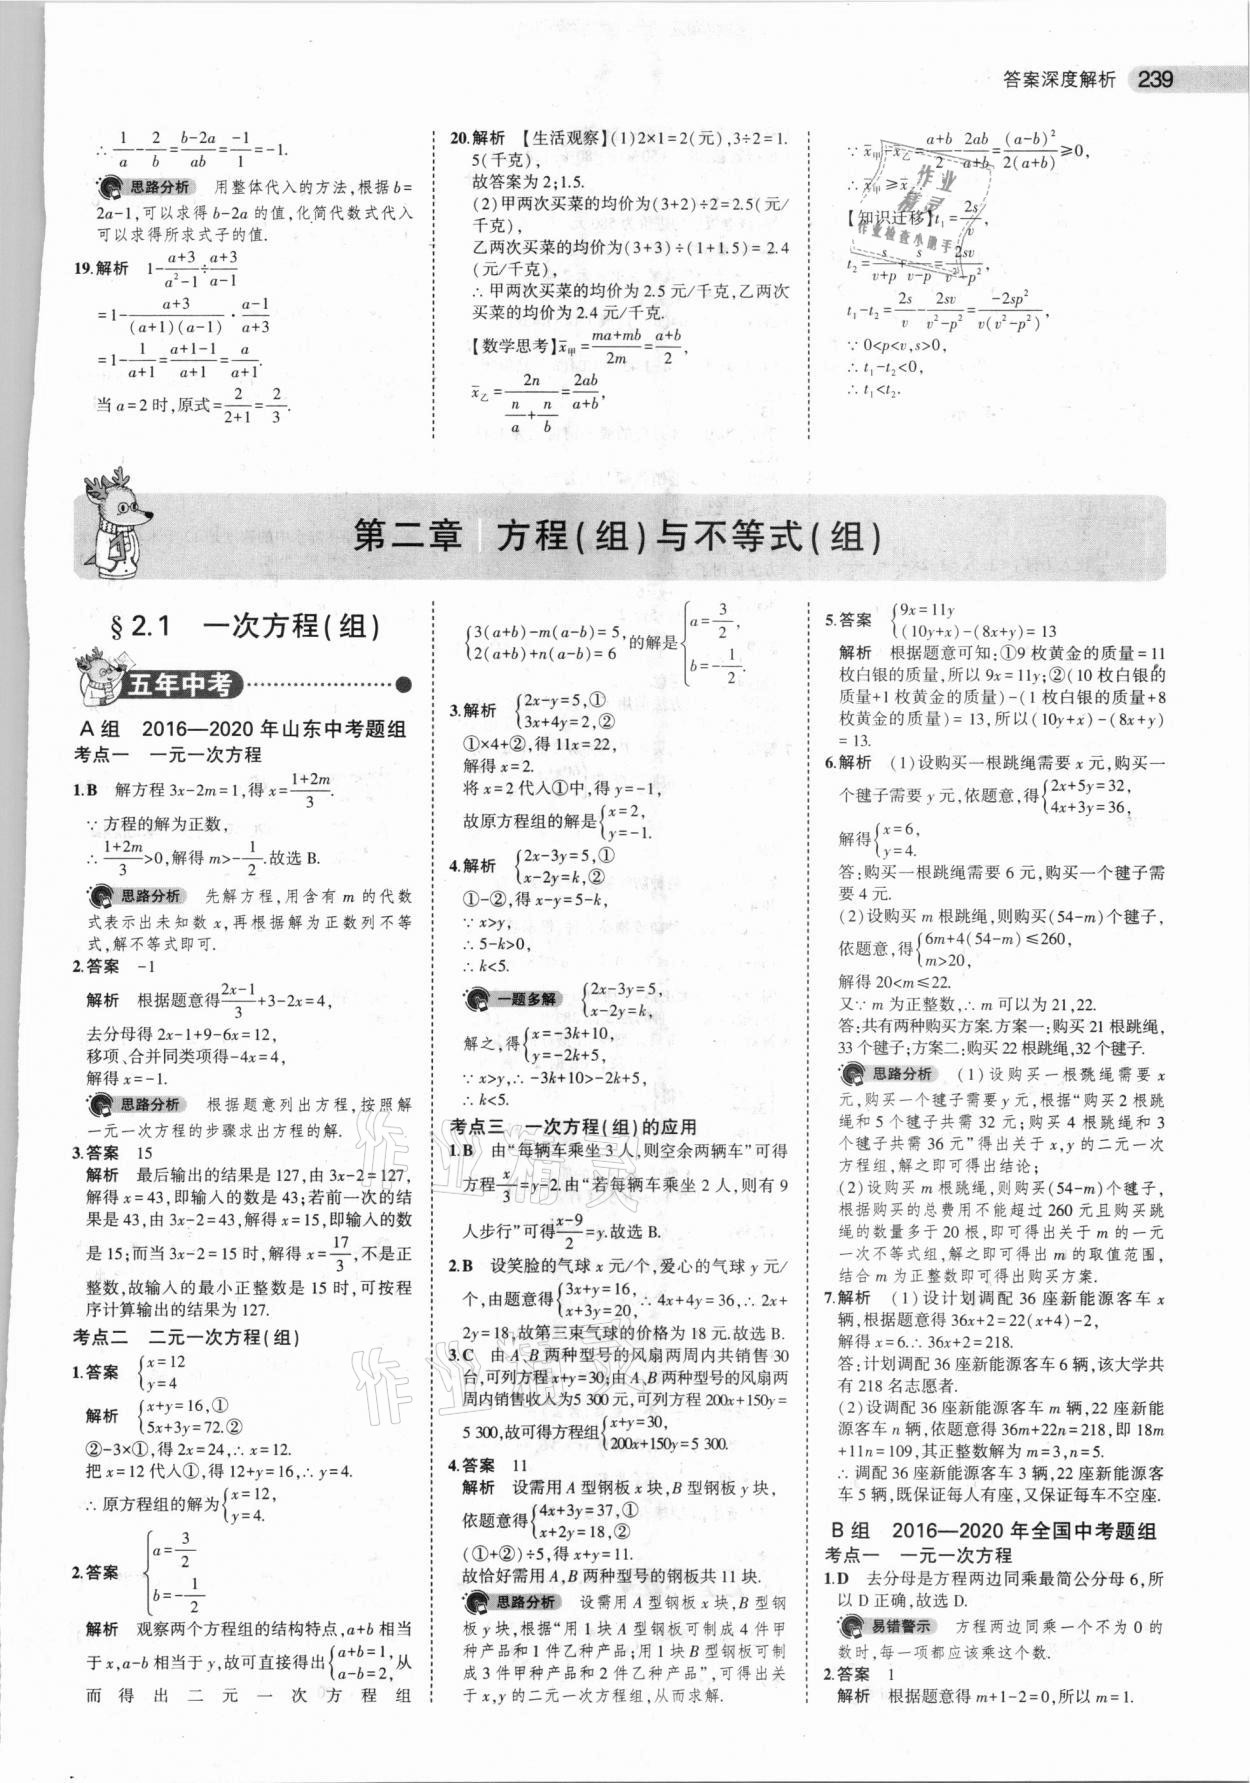 答案深度解析 239
∴ 1/a-2/b=(b-2a)/ab=-1/1=-1.
思路分析 用整体代入的方法,根据b=
2a-1,可以求得b-2a的值,化简代数式代入
可以求得所求式子的值.
19.解析 1-(a+3)/(a²-1)÷(a+3)/(a-1)
=1-(a+3)/((a+1)(a-1))·(a-1)/(a+3)
=1-1/(a+1)=(a+1-1)/(a+1)=a/(a+1).
当a=2时,原式=2/(2+1)=2/3.
20.解析 【生活观察】(1)2×1=2(元),3÷2=1.
5(千克),
故答案为2;1.5.
(2)甲两次买菜的均价为(3+2)÷2=2.5(元/
千克),
乙两次买菜的均价为(3+3)÷(1+1.5)=2.4
(元/千克),
∴甲两次买菜的均价为2.5元/千克,乙两次
买菜的均价为2.4元/千克.
【数学思考】x̄甲=(ma+mb)/2m=(a+b)/2,
x̄乙=2n/(n/a+n/b)=2ab/(a+b),
∵ x̄甲-x̄乙=(a+b)/2-2ab/(a+b)=(a-b)²/2(a+b)≥0,
∴ x̄甲≥x̄乙.
【知识迁移】t₁=2s/v,
t₂=s/(v+p)+s/(v-p)=2sv/(v²-p²),
t₁-t₂=2s/v-2sv/(v²-p²)=-2sp²/v(v²-p²),
∵ 0<p<v,s>0,
∴ t₁-t₂<0,
∴ t₁<t₂.
第二章 方程(组)与不等式(组)
§2.1 一次方程(组)
五年中考
A组 2016—2020年山东中考题组
考点一 一元一次方程
1.B 解方程3x-2m=1,得x=(1+2m)/3.
∵方程的解为正数,
∴(1+2m)/3>0,解得m>-1/2.故选B.
思路分析 先解方程,用含有m的代数
式表示出未知数x,再根据解为正数列不等
式,解不等式即可.
2.答案 -1
解析 根据题意得(2x-1)/3+3-2x=4,
去分母得2x-1+9-6x=12,
移项、合并同类项得-4x=4,
解得x=-1.
思路分析 根据题意列出方程,按照解
一元一次方程的步骤求出方程的解.
3.答案 15
解析 最后输出的结果是127,由3x-2=127,
解得x=43,即输入的数是43;若前一次的结
果是43,由3x-2=43,解得x=15,即输入的数
是15;而当3x-2=15时,解得x=17/3,不是正
整数,故输入的最小正整数是15时,可按程
序计算输出的结果为127.
考点二 二元一次方程(组)
1.答案 {x=12
y=4
解析 {x+y=16,①
5x+3y=72.②
②-3×①,得2x=24,∴x=12.
把x=12代入①,得12+y=16,∴y=4.
∴原方程组的解为{x=12,
y=4.
2.答案 {a=3/2
b=-1/2
解析 观察两个方程组的结构特点,a+b相当
于x,a-b相当于y,故可直接得出{a+b=1,
a-b=2,从
而得出二元一次方程组
{3(a+b)-m(a-b)=5,
2(a+b)+n(a-b)=6 的解是{a=3/2,
b=-1/2.
3.解析 {2x-y=5,①
3x+4y=2,②
①×4+②,得11x=22,
解得x=2.
将x=2代入①中,得y=-1,
故原方程组的解是{x=2,
y=-1.
4.解析 {2x-3y=5,①
x-2y=k,②
①-②,得x-y=5-k,
∵x>y,
∴5-k>0,
∴k<5.
一题多解 {2x-3y=5,
x-2y=k,
解之,得{x=-3k+10,
y=-2k+5,
∵x>y,∴-3k+10>-2k+5,
∴k<5.
考点三 一次方程(组)的应用
1.B 由“每辆车乘坐3人,则空余两辆车”可得
方程x/3=y-2.由“若每辆车乘坐2人,则有9
人步行”可得(x-9)/2=y.故选B.
2.B 设笑脸的气球x元/个,爱心的气球y元/
个,由题意得{3x+y=16,
x+3y=20,∴4x+4y=36,∴2x+
2y=18,故第三束气球的价格为18元.故选B.
3.C 由A,B两种型号的风扇两周内共销售30
台,可列方程x+y=30;由A,B两种型号的风扇两
周内销售收入为5 300元,可列方程200x+150y=
5 300,故可得方程组{x+y=30,
200x+150y=5 300.
4.答案 11
解析 设需用A型钢板x块,B型钢板y块,
依题意得{4x+3y=37,①
x+2y=18,②
(①+②)÷5,得x+y=11.
故恰好需用A,B两种型号的钢板共11块.
思路分析 设需用A型钢板x块,B型钢
板y块,根据“用1块A型钢板可制成4件甲
种产品和1件乙种产品;用1块B型钢板可制
成3件甲种产品和2件乙种产品”,可得出关
于x,y的二元一次方程组,从而求解.
5.答案 {9x=11y
(10y+x)-(8x+y)=13
解析 根据题意可知:①9枚黄金的质量=11
枚白银的质量,所以9x=11y;②(10枚白银的
质量+1枚黄金的质量)-(1枚白银的质量+8
枚黄金的质量)=13,所以(10y+x)-(8x+y)
=13.
6.解析 (1)设购买一根跳绳需要x元,购买一
个毽子需要y元,依题意,得{2x+5y=32,
4x+3y=36,
解得{x=6,
y=4.
答:购买一根跳绳需要6元,购买一个毽子需
要4元.
(2)设购买m根跳绳,则购买(54-m)个毽子,
依题意,得{6m+4(54-m)≤260,
m>20,
解得20<m≤22.
又∵m为正整数,∴m可以为21,22.
答:共有两种购买方案.方案一:购买21根跳绳,
33个毽子;方案二:购买22根跳绳,32个毽子.
思路分析 (1)设购买一根跳绳需要x
元,购买一个毽子需要y元,根据“购买2根跳
绳和5个毽子共需32元;购买4根跳绳和3
个毽子共需36元”得出关于x,y的二元一次
方程组,解之即可得出结论;
(2)设购买m根跳绳,则购买(54-m)个毽子,
根据购买的总费用不能超过260元且购买跳
绳的数量多于20根,即可得出关于m的一元
一次不等式组,解之即可得出m的取值范围,
结合m为正整数即可得出购买方案.
7.解析 (1)设计划调配36座新能源客车x
辆,根据题意得36x+2=22(x+4)-2,
解得x=6.∴36x+2=218.
答:计划调配36座新能源客车6辆,该大学共
有218名志愿者.
(2)设调配36座新能源客车m辆,22座新能
源客车n辆,依题意得36m+22n=218,即18m
+11n=109,其正整数解为m=3,n=5.
∴调配36座新能源客车3辆,22座新能源客
车5辆,既保证每人有座,又保证每车不空座.
B组 2016—2020年全国中考题组
考点一 一元一次方程
1.D 去分母是方程两边同乘最简公分母6,所
以D正确,故选D.
易错警示 方程两边同乘一个不为0的
数时,每一项都应该乘这个数.
2.答案 1
解析 根据题意得m+1-2=0,所以m=1.
作业精灵
作业检查小助手
作业精灵
作业精灵